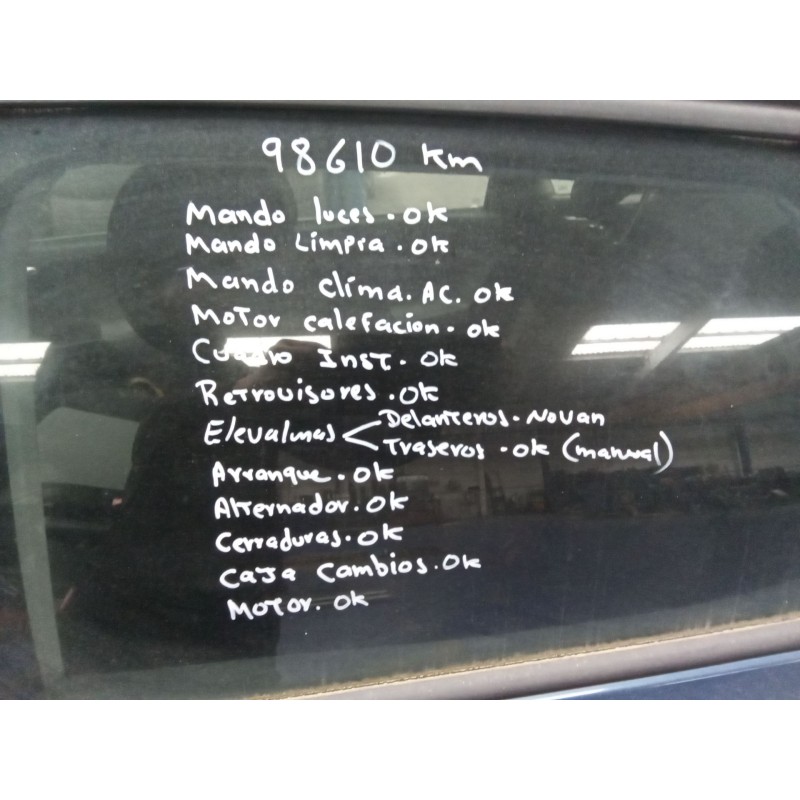 98610 Km
Mando luces. ok
Mando Limpia. ok
Mando clima. AC. ok
Motor calefacion. ok
Cuadro Inst. ok
Retrovisores. ok
Elevalunas < Delanteros. No van
Traseros. ok (manual)
Arranque. ok
Alternador. ok
Cerraduras. ok
Caja Cambios. ok
Motor. ok